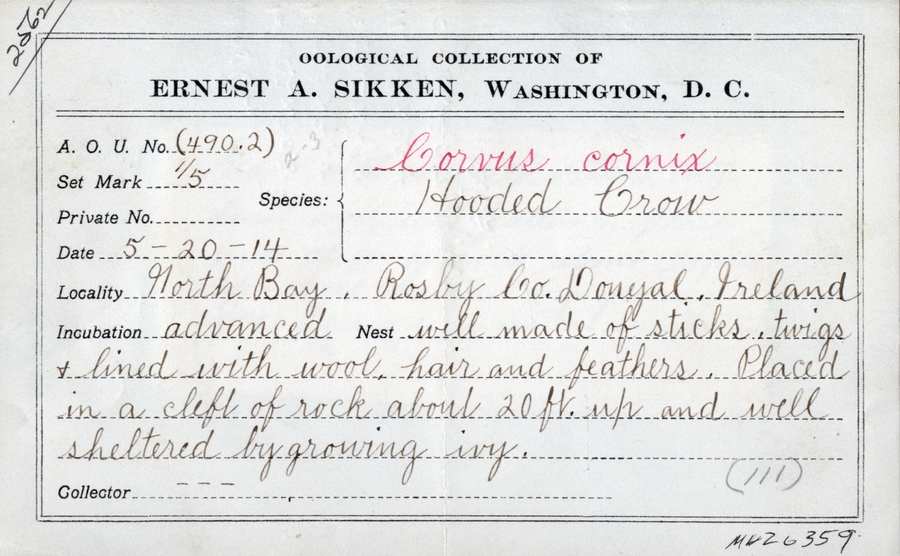 2562
OOLOGICAL COLLECTION OF
ERNEST A. SIKKEN, WASHINGTON, D. C.
A. O. U. No. (490.2)
2-3
Set Mark 1/5
Private No.
Date 5-20-14
Species: Corvus cornix
Hooded Crow
Locality North Bay, Rosby Co. Donegal, Ireland
Incubation advanced Nest well made of sticks, twigs
& lined with wool, hair and feathers. Placed
in a cleft of rock about 20 ft. up and well
sheltered by growing ivy.
Collector - - -
(111)
26359